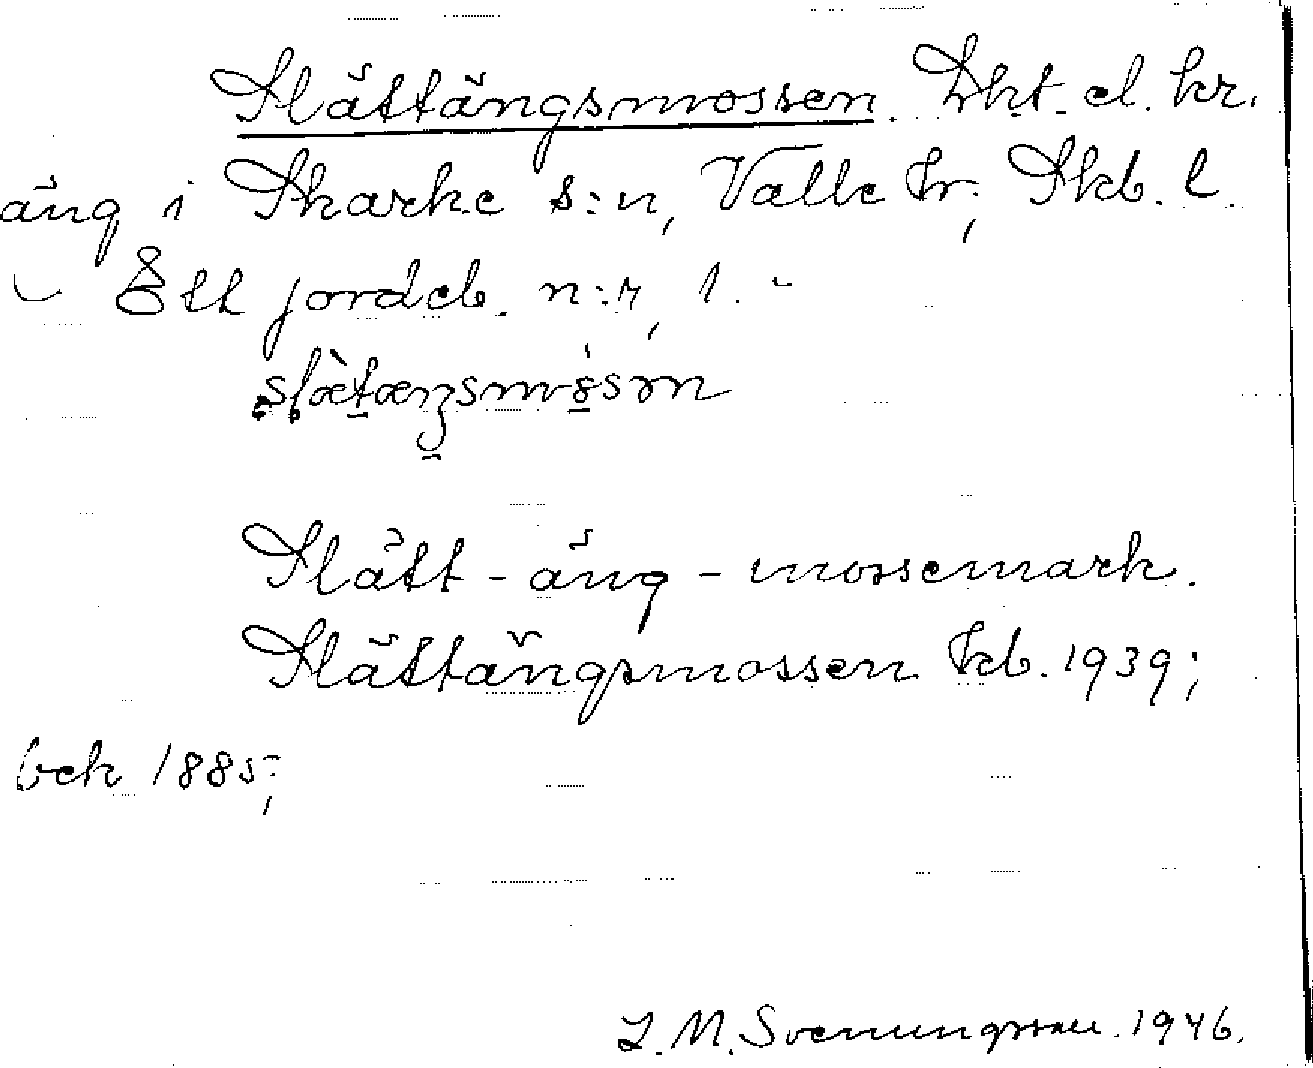 Slättängsmossen. Skt. el. kr.
äng i Skarke s:n, Valle hr; Skb. l.
- Ett jordeb. n:r, 1. -
slætæŋsmosən
Slätt - äng - mossemark.
Slättängsmossen kb. 1939;
bek 1885;
L. M. Svenungsson. 1946.